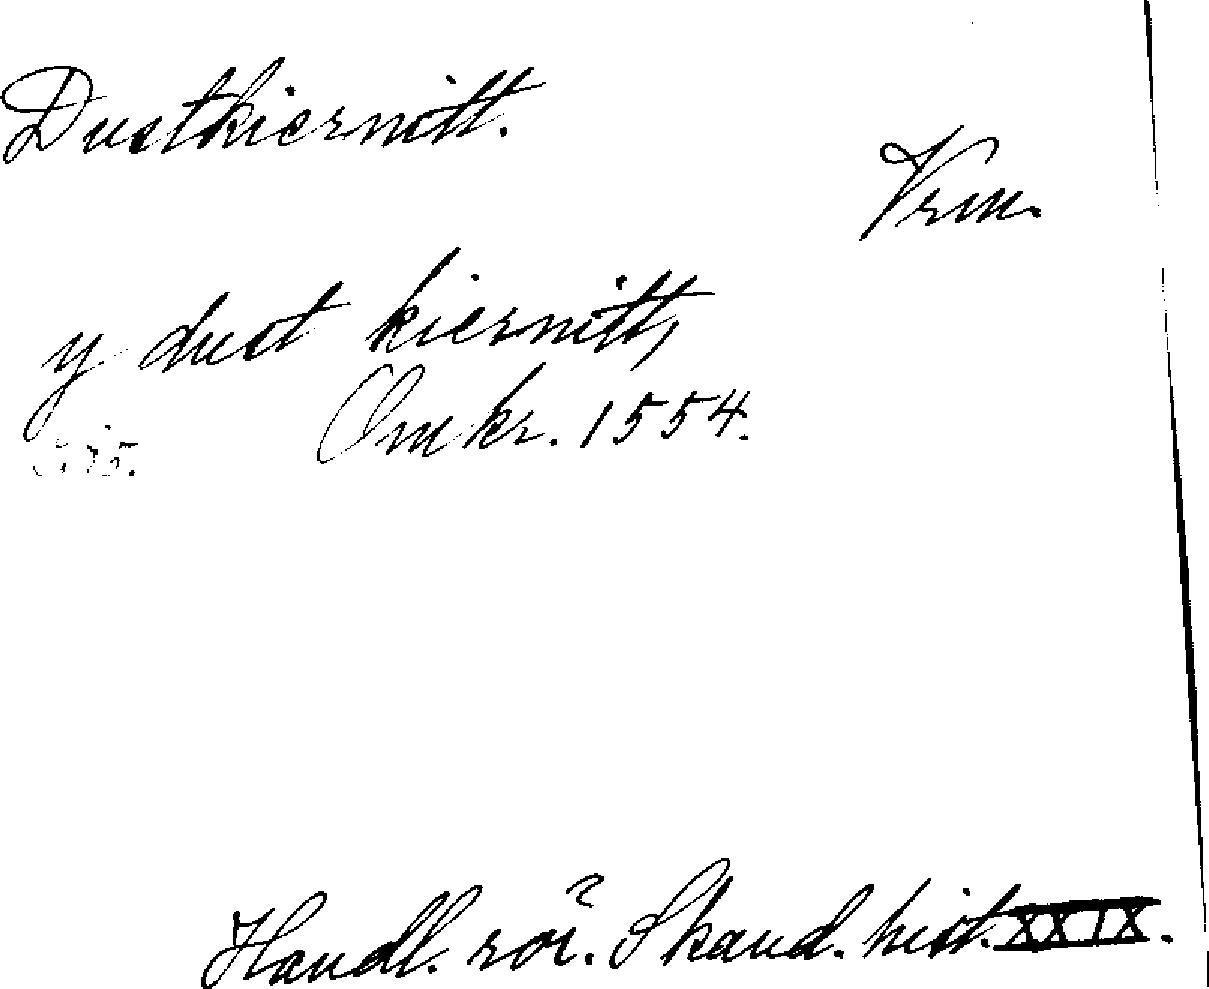 Dustkiernitt.
Vrm.
y dust kiernitt,
Omkr. 1554.
Handl. rör. Skand. hist. XXIX.